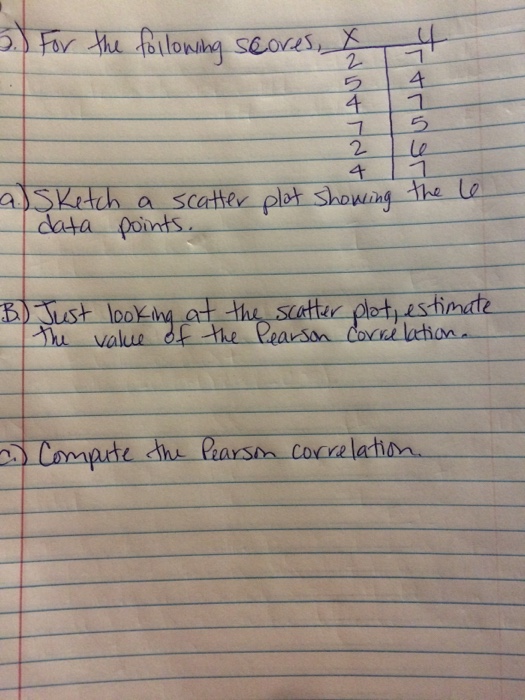 5.) For the following scores, X y
2 7
5 4
4 7
7 5
2 6
4 7
a.) Sketch a scatter plot showing the 6
data points.
B.) Just looking at the scatter plot, estimate
the value of the Pearson Correlation.
c.) Compute the Pearson correlation.